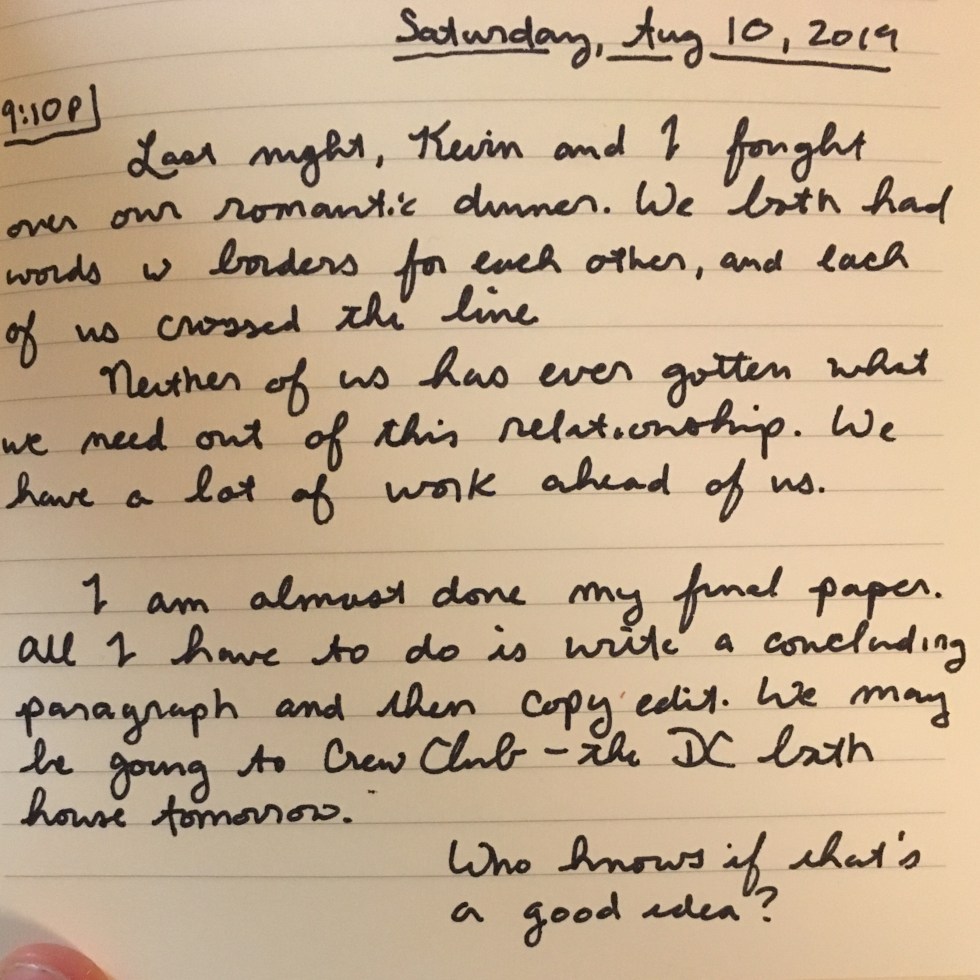 Saturday, Aug 10, 2019
9:10P
Last night, Kevin and I fought
over our romantic dinner. We both had
words w borders for each other, and each
of us crossed the line
Neither of us has ever gotten what
we need out of this relationship. We
have a lot of work ahead of us.
I am almost done my final paper.
All I have to do is write a concluding
paragraph and then copy edit. We may
be going to Crew Club - the DC bath
house tomorrow.
Who knows if that's
a good idea?